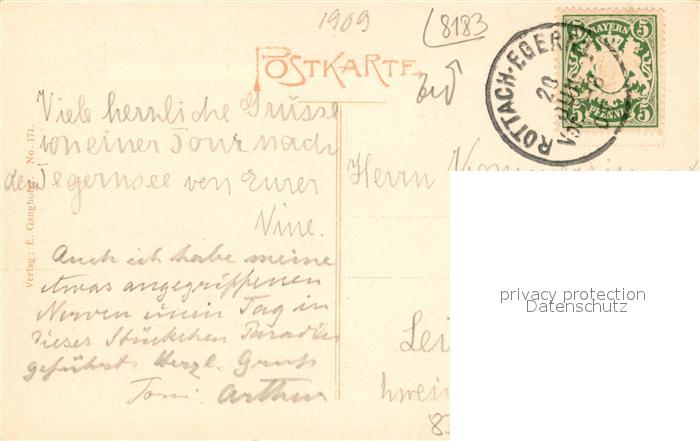 1909
8183
POSTKARTE
BAYERN
5 5
5 5
PFENNIG
ROTTACH-EGERN
20
Viele herrliche Grüsse
von einer Tour nach
dem Tegernsee von Eurer
Vine.
Auch ich habe meine
etwas angegriffenen
Nerven einen Tag in
dieses Stückchen Paradies
geführt. Herzl. Gruß
Arthur
Herrn
Verlag: E. Ganghofer. No. 171.
privacy protection
Datenschutz